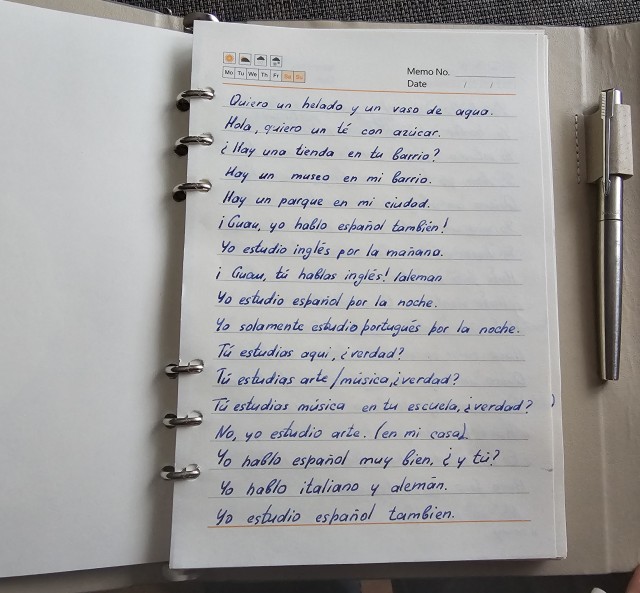 Mo Tu We Th Fr Sa Su
Memo No.
Date / /
Quiero un helado y un vaso de agua.
Hola, quiero un té con azúcar.
¿Hay una tienda en tu barrio?
Hay un museo en mi barrio.
Hay un parque en mi ciudad.
¡Guau, yo hablo español también!
Yo estudio inglés por la mañana.
¡Guau, tú hablas inglés! /aleman
Yo estudio español por la noche.
Yo solamente estudio portugués por la noche.
Tú estudias aquí, ¿verdad?
Tú estudias arte/música,¿verdad?
Tú estudias música en tu escuela,¿verdad?
No, yo estudio arte. (en mi casa).
Yo hablo español muy bien, ¿y tú?
Yo hablo italiano y alemán.
Yo estudio español tambien.